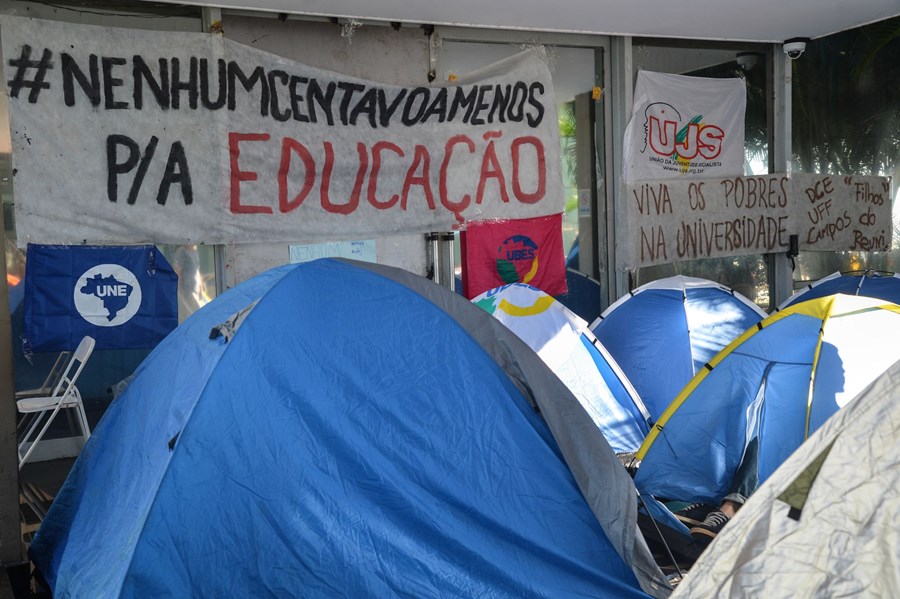 #NENHUMCENTAVOAMENOS
P/A EDUCAÇÃO
UJS
UNIÃO DA JUVENTUDE SOCIALISTA
www.ujs.org.br
VIVA OS POBRES
NA UNIVERSIDADE
DCE
UFF
CAMPOS
"Filhos
do
Reuni"
UNE
UBES